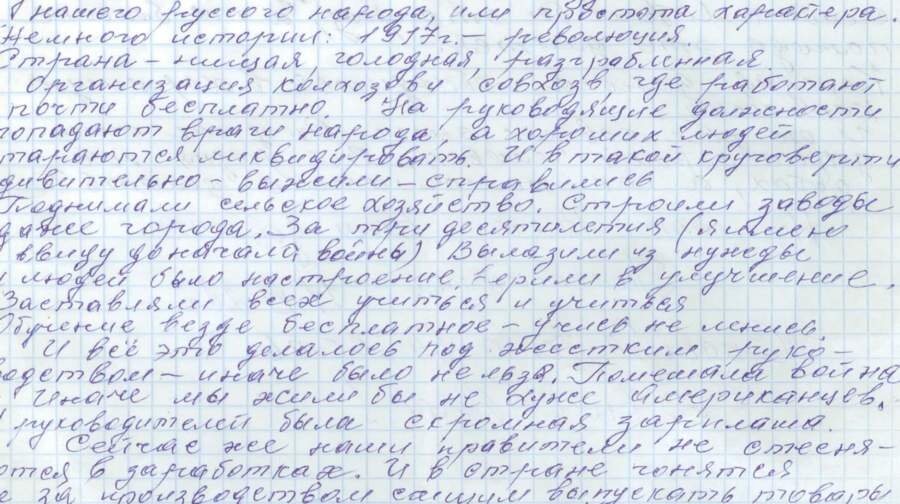 нашего руссого народа, или простота характера.
Немного истории: 1917г. – революция.
Страна – нищая, голодная, разграбленная.
Организация колхозов и совхозв, где работают
почти бесплатно. На руководящие должности
попадают враги народа, а хороших людей
стараются ликвидировать. И в такой круговерти
удивительно – выжили – справились
Поднимали сельское хозяйство. Строили заводы
даже города. За три десятилетия (я имею
ввиду до начала войны) Вылазили из нужды
у людей было настроение. Верили в улучшение.
Заставляли всех учиться и учиться
Обучение везде бесплатное – учись не ленись
И всё это делалось под жестким руко-
водством – иначе было нельзя. Помешала война
Иначе мы жили бы не хуже Американцев.
У руководителей была скромная зарплата.
Сейчас же наши правители не стесня-
ются в заработках. И в стране гонятся
за производством выпускать товары